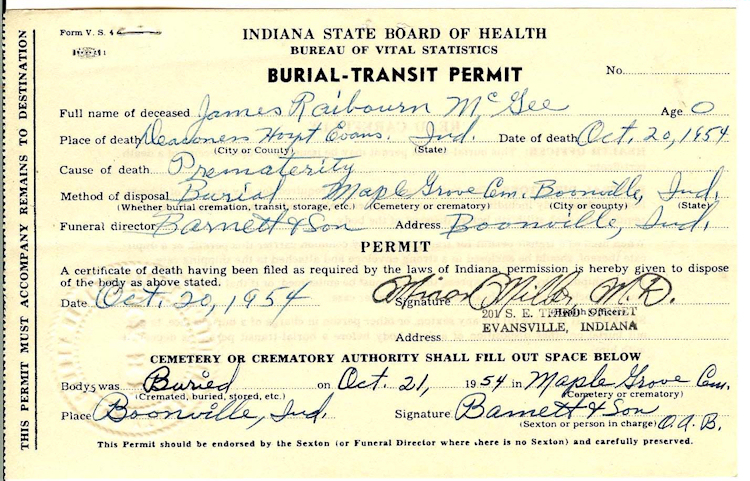 Form V. S. 4
INDIANA STATE BOARD OF HEALTH
BUREAU OF VITAL STATISTICS
BURIAL-TRANSIT PERMIT
No.
Full name of deceased James Raibourn McGee Age 0
Place of death Deaconess Hospt Evans. Ind. Date of death Oct. 20, 1954
(City or County) (State)
Cause of death Prematerity
Method of disposal Burial Maple Grove Cem. Boonville, Ind.
(Whether burial cremation, transit, storage, etc.) (Cemetery or crematory) (City or county) (State)
Funeral director Barnett & Son Address Boonville, Ind.
PERMIT
A certificate of death having been filed as required by the laws of Indiana, permission is hereby given to dispose
of the body as above stated.
Date Oct. 20, 1954 Signature Minor Miller, M.D.
Health Officer
201 S. E. THIRD STREET
EVANSVILLE, INDIANA
Address
CEMETERY OR CREMATORY AUTHORITY SHALL FILL OUT SPACE BELOW
Body was Buried on Oct. 21, 1954 in Maple Grove Cem.
(Cremated, buried, stored, etc.) (Cemetery or crematory)
Place Boonville, Ind. Signature Barnett & Son
(Sexton or person in charge) O.A.B.
This Permit should be endorsed by the Sexton (or Funeral Director where there is no Sexton) and carefully preserved.
THIS PERMIT MUST ACCOMPANY REMAINS TO DESTINATION